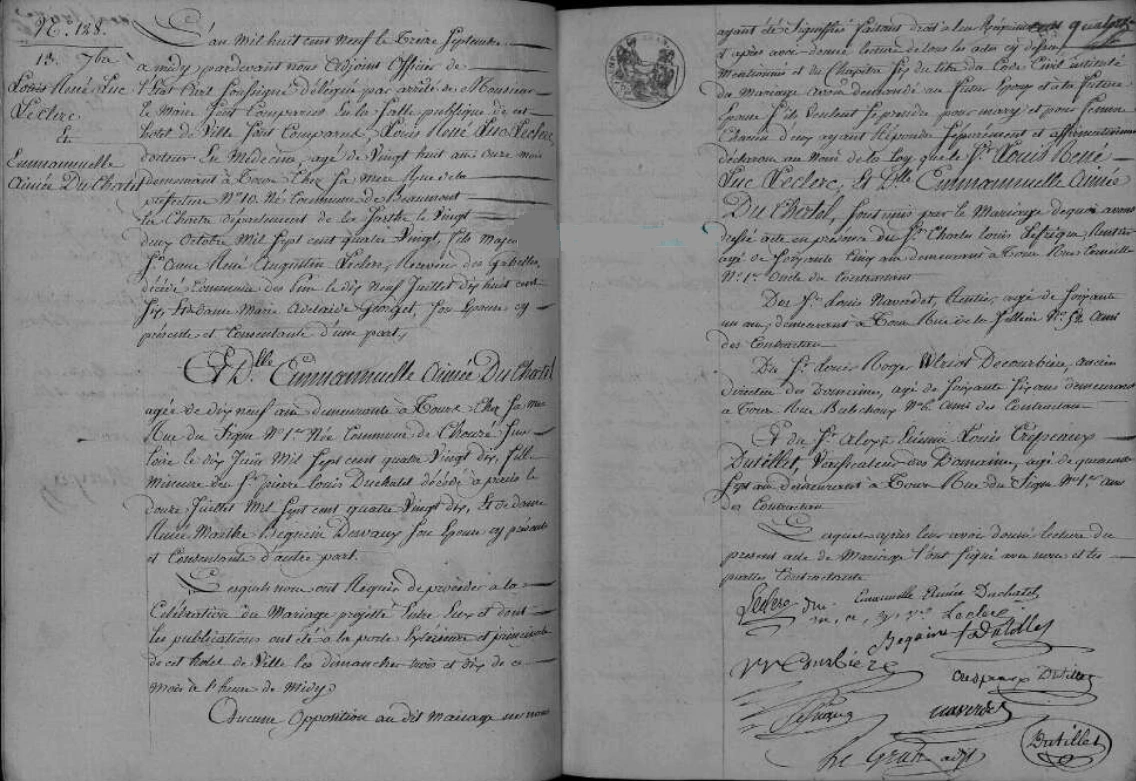 N.° 128.
13. 7bre
Louis René Luc
Leclerc
Et
Emmanuelle
Aimée Du Chatel
L'an Mil huit cent Neuf le Treize Septembre
a midy pardevant nous Adjoint officier de
l'Etat Civil Soussigné délégué par arrêté de Monsieur
le Maire Sont Comparus En la Salle publique de cet
hotel de Ville Sont Comparus Louis René Luc Leclerc
docteur En Médecine, agé de Vingt huit ans onze mois
demeurant à Tours Chez Sa Mere Rue de la
préfecture N° 10. Né Commune de Beaumont
la Chartre département de la Sarthe le Vingt
deux Octobre Mil Sept cent quatre Vingt, fils Majeur
Sr. René Augustin Leclerc, Receveur des Gabelles
décédé Commune des le dix Neuf Juillet dix huit cent
Six, Et dame Marie Adelaide Georget, Son Epouse, cy
présente et Consentante d'une part,
Et D.lle Emmanuelle Aimée Du Chatel
agée de dix neuf ans demeurante à Tours Chez Sa mere
Rue du Signe N° 1er Née Commune de Chouzé Sur
loire le dix Juin Mil Sept cent quatre Vingt dix, fille
Mineure du Sr. pierre Louis Duchatel décédé a le
douze Juillet Mil Sept cent quatre Vingt dix, Et de dame
Renée Marthe Beguin Desvaux Son Epouse cy présente
et Consentante d'autre part.
Lesquels nous ont Requis de procéder à la
Célébration du Mariage projetté Entre Eux et dont
les publications ont été a la porte Extérieure et principale
de cet hotel de Ville les dimanches trois et dix de ce
mois à l'heure de Midy,
Aucune Opposition au dit mariage ne nous
ayant été Signiffiée faisant droit a leur Réquisition
et après avoir donné lecture de tous les actes cy dessus
Mentionnés et du Chapitre Six du titre du Code Civil intitulé
du Mariage avons demandé au Futur Epoux et à la Future
Epouse S'ils Veulent Se prendre pour mary et pour femme
Chacun d'eux ayant Répondu Séparément et affirmativement
déclarons au Nom de la Loy que le Sr. Louis René
Luc Leclerc, Et D.lle Emmanuelle Aimée
Du Chatel, Sont unis par le Mariage de quoi avons
dressé acte en présence du Sr. Charles Louis Rentier
agé de Soixante Cinq ans demeurant à Tours Rue
N° 1er Oncle du Contractant
Du Sr. Louis Navardet, Rentier, agé de Soixante
un ans, demeurant à Tours Rue de la N° 52 Ami
des Contractans
Du Sr. Louis Roger Decourbiere, ancien
Directeur des Domaines, agé de Soixante Six ans demeurant
a Tours Rue N° 6. Ami des Contractans
Et du Sr. Etienne Louis Crespeaux
Dutillet, Vérificateur des Domaines, agé de quarante
Sept ans demeurant à Tours Rue du Signe N° 1er ami
des Contractans
Lesquels après leur avoir donné lecture du
present acte de Mariage l'ont Signé avec nous et les
parties Contractante
Leclerc Emanuelle Aimée Duchatel
Leclerc
Dutillet
Courbiere
Crespeaux Dutillet
Navardet
Dutillet
Le Grand adjt